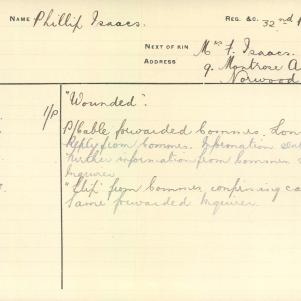 NAME Phillip Isaacs. REG. &C. 32nd
NEXT OF KIN Mrs F. Isaacs.
ADDRESS 9. Montrose A
Norwood
1/P "Wounded".
P/Cable forwarded Commes. Lon
Reply from Commes. Information
further information from Commes
Inquirer
"Slip" from Commes confirming ca
Same forwarded Inquirer.